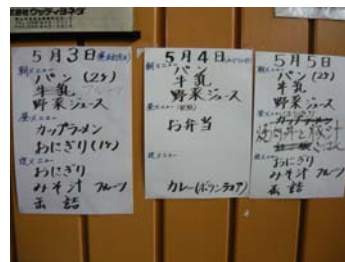 株式会社 ウッディヨネダ
5月3日
朝メニュー
パン (2ヶ)
牛乳 フルーツ
野菜ジュース
昼メニュー
カップラーメン
おにぎり(1ヶ)
夜メニュー
おにぎり
みそ汁 フルーツ
缶詰
5月4日
朝メニュー
パン
牛乳
野菜ジュース
昼メニュー
お弁当
夜メニュー
カレー(ボランティア)
5月5日
朝メニュー
パン (2ヶ)
牛乳
野菜ジュース
昼メニュー
カップラーメン
焼肉丼と豚汁
ごはん
夜メニュー
おにぎり
みそ汁 フルーツ
缶詰